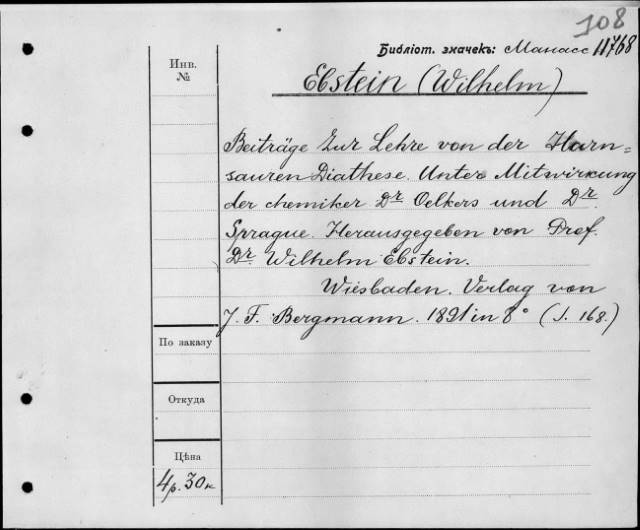 108
Библіот. значекъ: Манасс 11768
Инв.
№
Ebstein (Wilhelm)
Beiträge zur Lehre von der Harn=
sauren Diathese. Unter Mitwirkung
der chemiker Dr Oelkers und Dr.
Sprague. Herausgegeben von Prof.
Dr. Wilhelm Ebstein.
Wiesbaden. Verlag von
J. F. Bergmann. 1891 in 8° (S. 168.)
По заказу
Откуда
Цѣна
4р. 30к